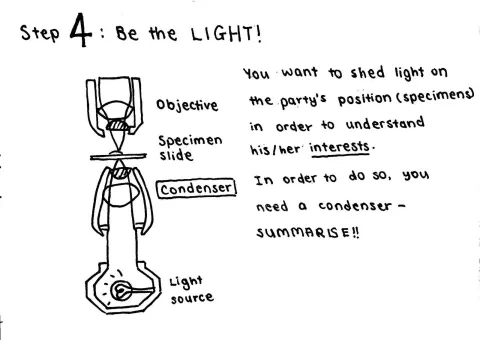 Step 4: Be the LIGHT!
Objective
Specimen
slide
Condenser
Light
source
You want to shed light on
the party's position (specimens)
in order to understand
his/her interests.
In order to do so, you
need a condenser –
SUMMARISE!!